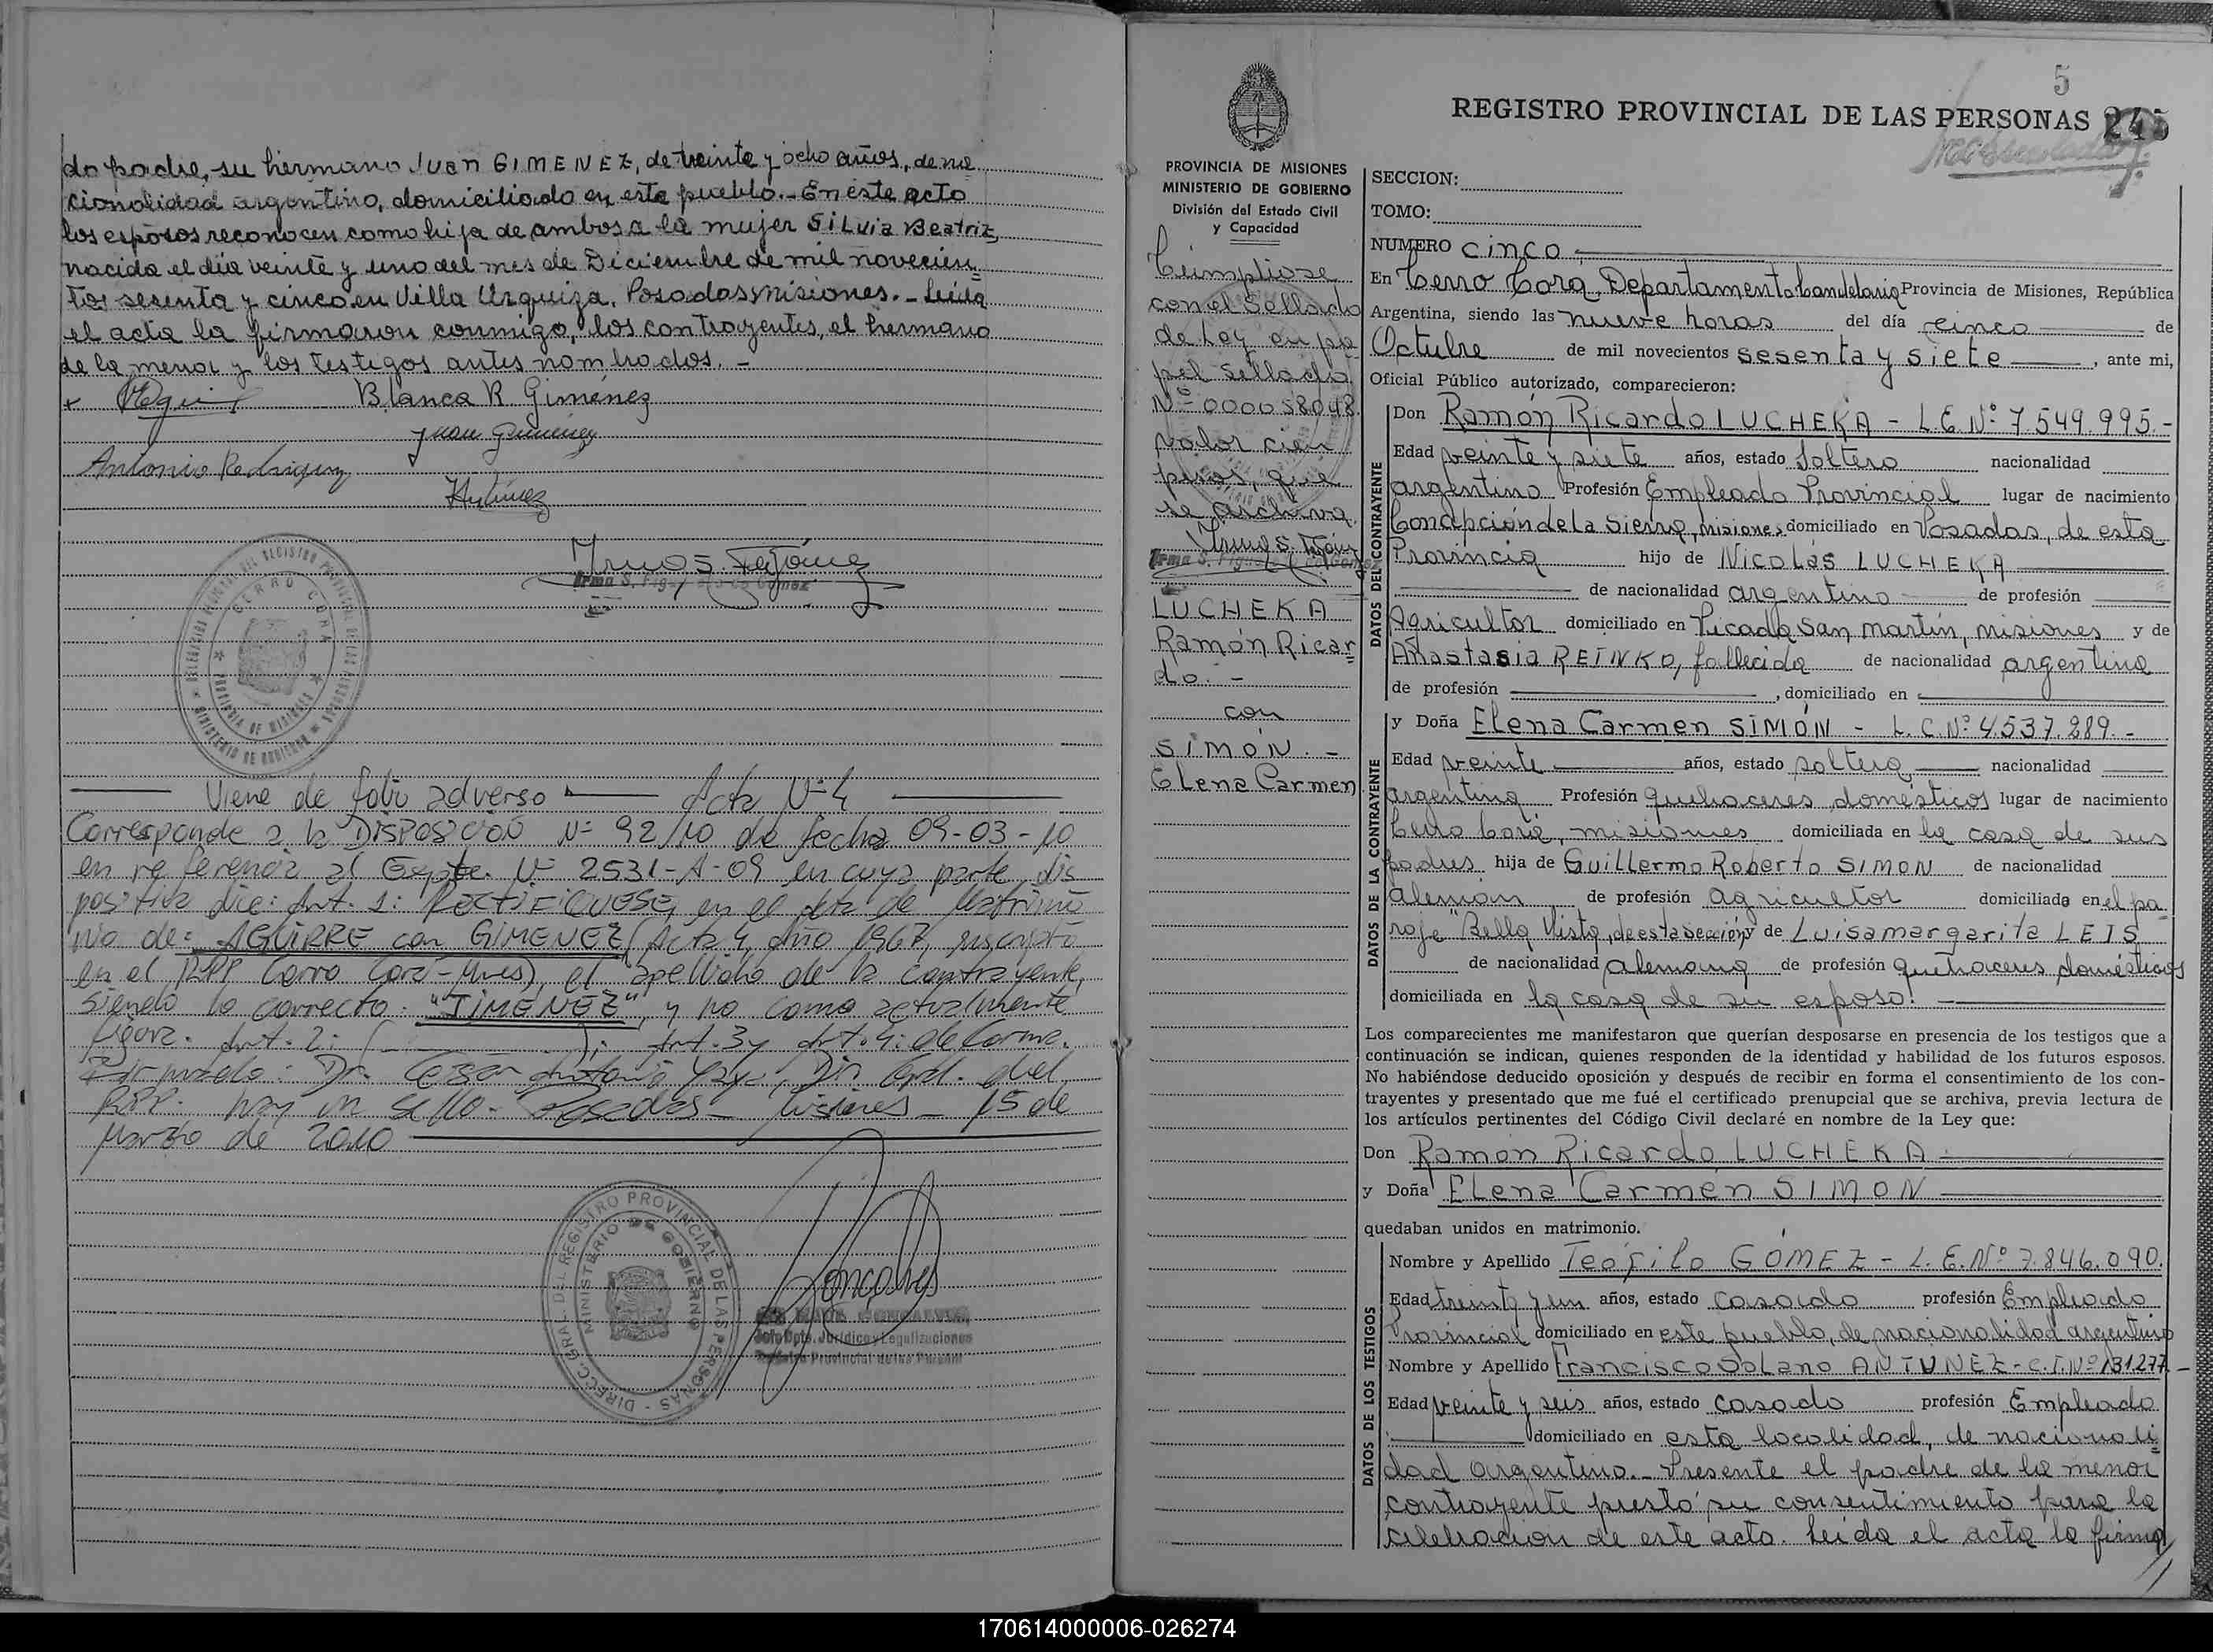 do padre, su hermano Juan GIMENEZ, de treinta y ocho años, de na
cionalidad argentino, domiciliado en este pueblo.- En este acto
los esposos reconocen como hija de ambos a la mujer Silvia Beatriz,
nacida el día veinte y uno del mes de Diciembre de mil novecien=
tos sesenta y cinco en Villa Urquiza, Posadas Misiones.- Leida
el acta la firmaron conmigo, los contrayentes, el hermano
de la menor y los testigos antes nombrados. -
Blanca R Gimenez
Juan Gimenez
Antonio Rodriguez
Irma S. Fig de Gomez
CERRO CORA
PROVINCIA DE MISIONES
MINISTERIO DE GOBIERNO
Viene de folio adverso Acta Nº 4
Corresponde a la DISPOSICION Nº 92/10 de fecha 09-03-10
en referencia al Expte. Nº 2531-A-09 en cuya parte dis
positiva dice: Art. 1: RECTIFIQUESE, en el acta de Matrimo
nio de: AGUIRRE con GIMENEZ (Acta 4, año 1967, inscripto
en el RPP Cerro Corá-Mnes), el apellido de la contrayente,
siendo lo correcto: "JIMENEZ" y no como actualmente
figura. Art. 2: ( ); Art. 3 y Art. 4: de forma.
Firmado: Dr. Cesar Antonio Dir. Gral. del
RPP. hay un sello - Posadas - Misiones - 15 de
Marzo de 2010
DIRECC. GRAL. DEL REGISTRO PROVINCIAL DE LAS PERSONAS
MINISTERIO DE GOBIERNO
Goncalves
Jefe Dpto. Jurídico y Legalizaciones
5
REGISTRO PROVINCIAL DE LAS PERSONAS 245
PROVINCIA DE MISIONES
MINISTERIO DE GOBIERNO
División del Estado Civil
y Capacidad
Cúmpliose
con el Sellado
de Ley en pa
pel sellado
Nº 00058048
valor cien
pesos, que
se archiva.
LUCHEKA
Ramón Ricar
do. -
con
SIMÓN. -
Elena Carmen
SECCION:
TOMO:
NUMERO cinco
En Cerro Cora, Departamento Candelaria Provincia de Misiones, República
Argentina, siendo las nueve horas del día cinco de
Octubre de mil novecientos sesenta y siete, ante mi,
Oficial Público autorizado, comparecieron:
DATOS DEL CONTRAYENTE
Don Ramón Ricardo LUCHEKA - L.E. Nº 7.549.995.-
Edad veinte y siete años, estado Soltero nacionalidad
argentino Profesión Empleado Provincial lugar de nacimiento
Concepción de la Sierra, Misiones domiciliado en Posadas, de esta
Provincia hijo de Nicolás LUCHEKA
de nacionalidad argentino de profesión
Agricultor domiciliado en Picada San Martín, Misiones y de
Anastasia REINKO, fallecida de nacionalidad argentina
de profesión , domiciliado en
DATOS DE LA CONTRAYENTE
y Doña Elena Carmen SIMÓN - L.C. Nº 4.537.289.-
Edad veinte años, estado soltera nacionalidad
argentina Profesión quehaceres domésticos lugar de nacimiento
Cerro Corá, Misiones domiciliada en la casa de sus
padres hija de Guillermo Roberto SIMON de nacionalidad
alemán de profesión agricultor domiciliado en el pa
raje "Bella Vista, de esta sección y de Luisa margarita LEIS
de nacionalidad alemana de profesión quehaceres domésticos
domiciliada en la casa de su esposo.
Los comparecientes me manifestaron que querían desposarse en presencia de los testigos que a
continuación se indican, quienes responden de la identidad y habilidad de los futuros esposos.
No habiéndose deducido oposición y después de recibir en forma el consentimiento de los con-
trayentes y presentado que me fué el certificado prenupcial que se archiva, previa lectura de
los artículos pertinentes del Código Civil declaré en nombre de la Ley que:
Don Ramón Ricardo LUCHEKA
y Doña Elena Carmen SIMON
quedaban unidos en matrimonio.
DATOS DE LOS TESTIGOS
Nombre y Apellido Teófilo GÓMEZ - L.E. Nº 7.846.090.
Edad treinta y un años, estado casado profesión Empleado
Provincial domiciliado en este pueblo, de nacionalidad argentino
Nombre y Apellido Francisco Solano ANTUNEZ - C.I. Nº 131.277-
Edad veinte y seis años, estado casado profesión Empleado
domiciliado en esta localidad, de nacionali=
dad argentino.- Presente el padre de la menor
contrayente prestó su consentimiento para la
celebración de este acto. Leida el acta la firma
170614000006-026274